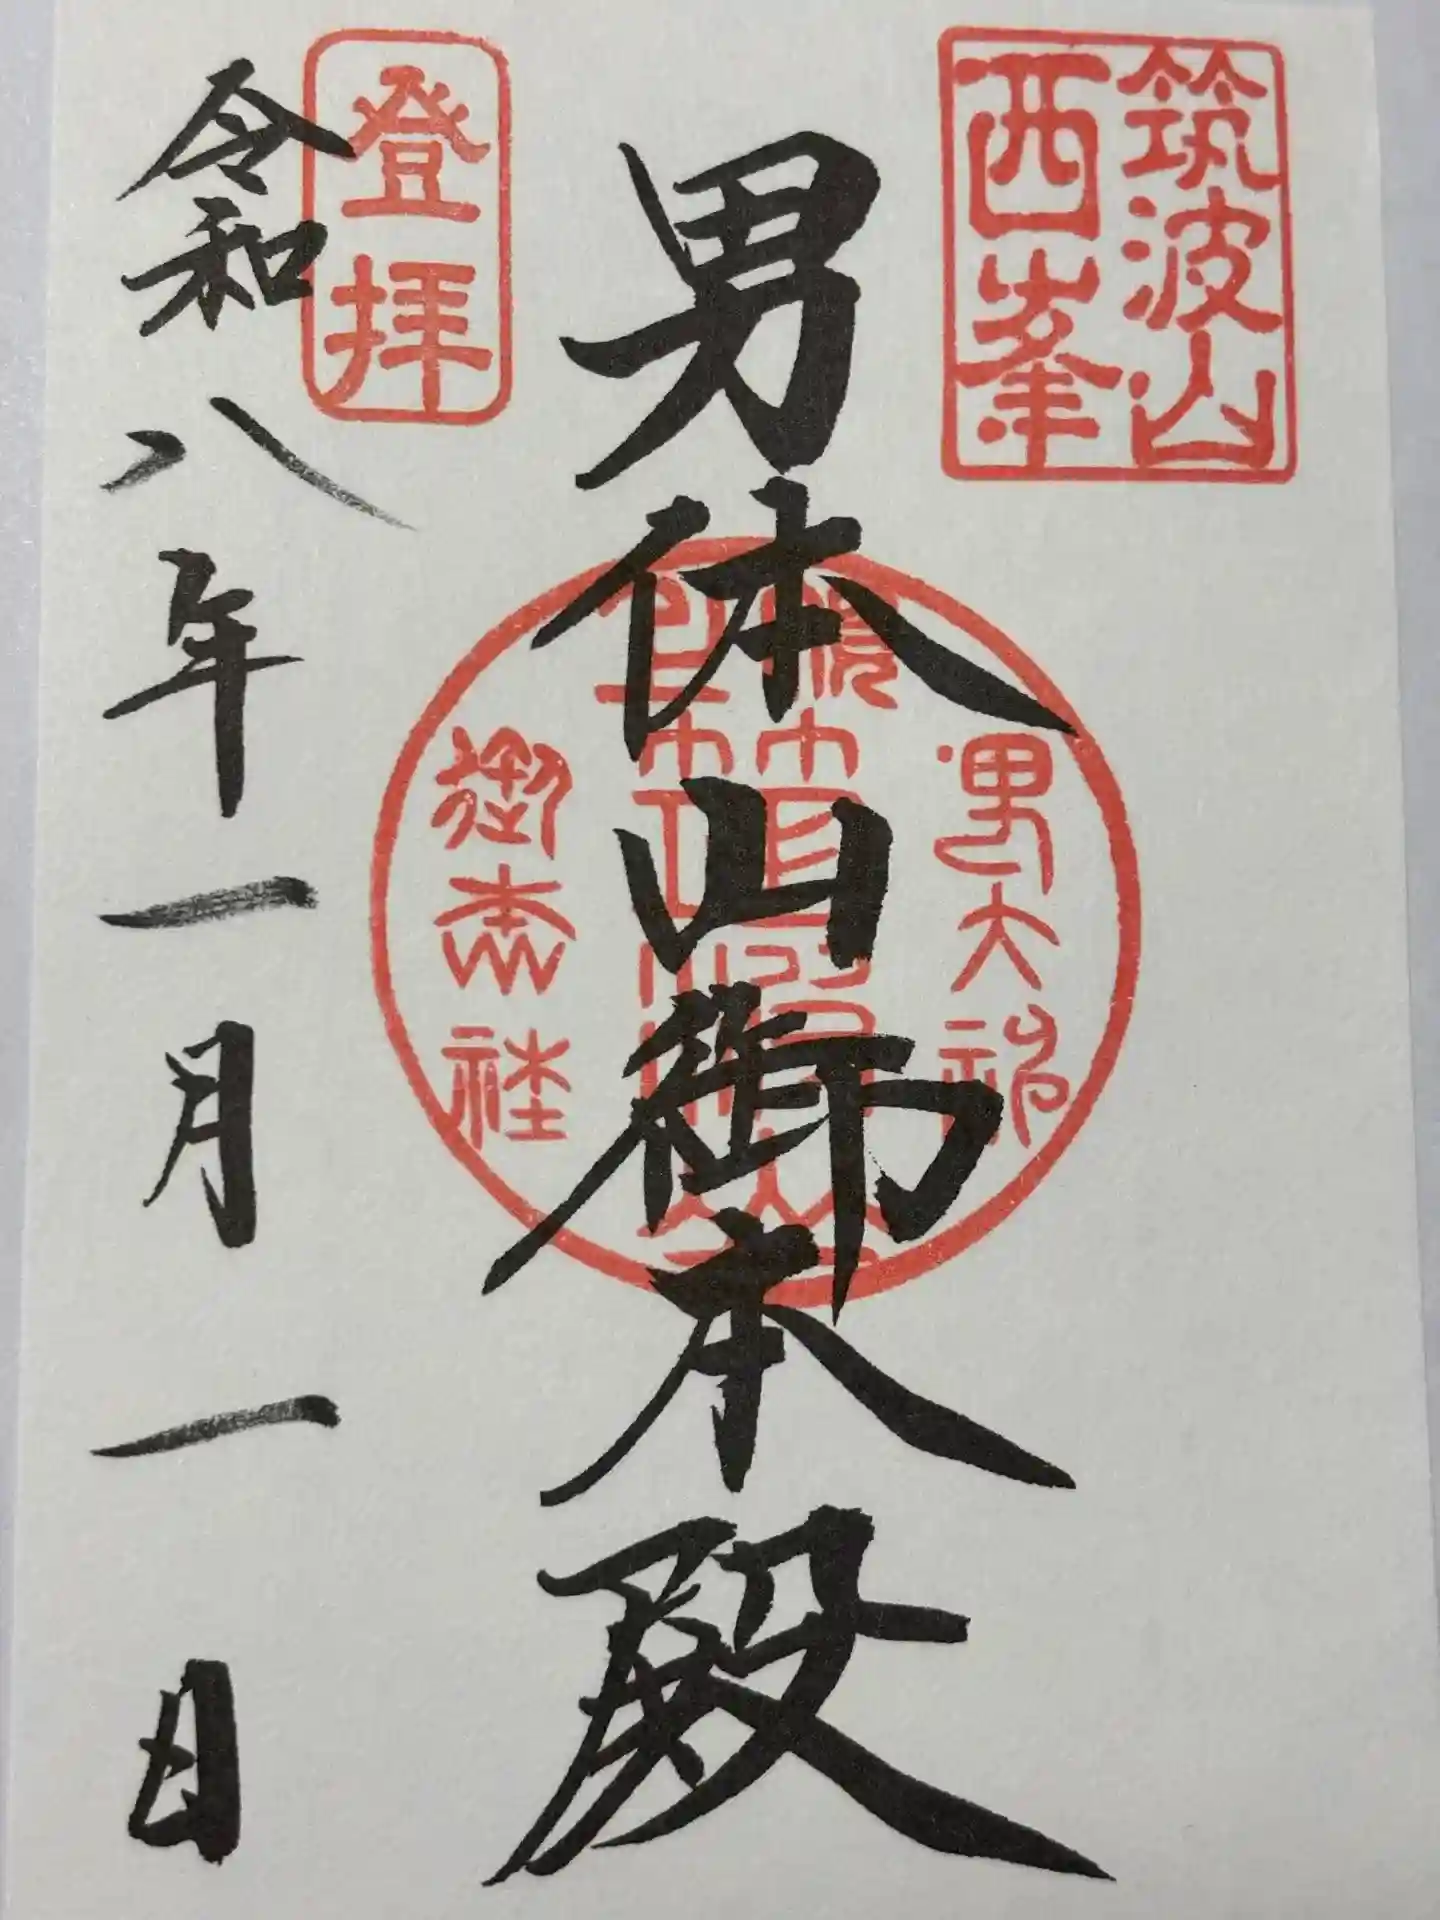 筑波山
西峯
男体山御本殿
男大神
御本社
登拝
令和八年一月一日